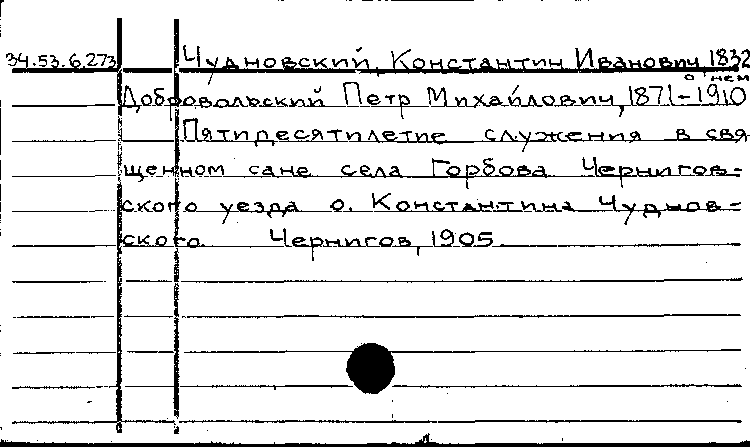 34.53.6.273 Чудновский, Константин Иванович, 1832
о нем
Добровольский Петр Михайлович, 1871-1910
Пятидесятилетие служения в свя
щенном сане села Горбова Чернигов=
ского уезда о. Константина Чуднов=
ского. Чернигов, 1905.